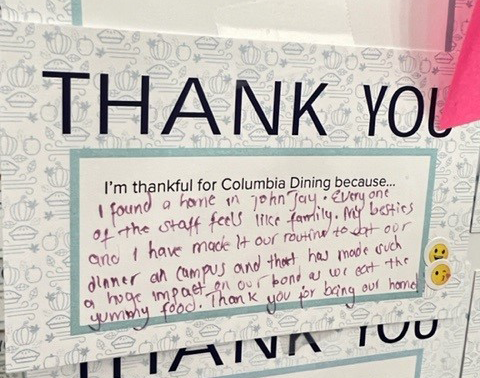 THANK YOU
I'm thankful for Columbia Dining because...
I found a home in John Jay. Everyone
of the staff feels like family. My besties
and I have made it our routine to eat our
dinner on campus and that has made such
a huge impact on our bond as we eat the
yummy food. Thank you for being our home!
THANK YOU